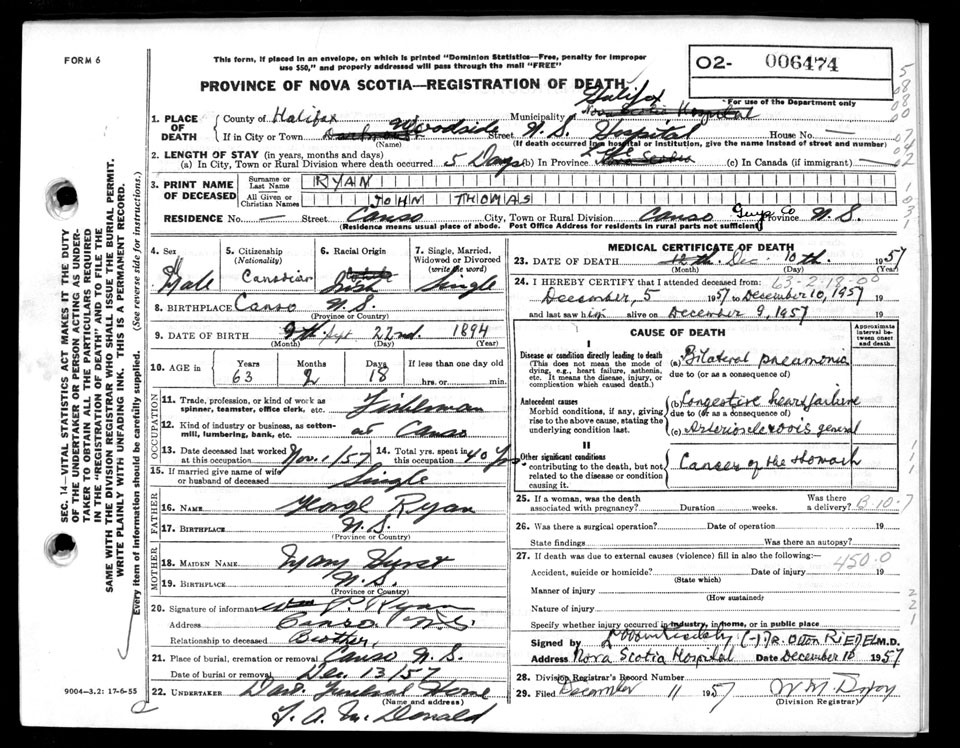 FORM 6
This form, if placed in an envelope, on which is printed "Dominion Statistics—Free, penalty for improper
use $50," and properly addressed will pass through the mail "FREE"
O2- 006474
For use of the Department only
PROVINCE OF NOVA SCOTIA—REGISTRATION OF DEATH
1. PLACE OF DEATH
County of Halifax Municipality Halifax Nova Scotia Hospital
If in City or Town Dartmouth Woodside Street N.S. Hospital House No. —
(Name) (If death occurred in a hospital or institution, give the name instead of street and number)
2. LENGTH OF STAY (in years, months and days)
(a) In City, Town or Rural Division where death occurred 5 Days (b) In Province Life Nova Scotia (c) In Canada (if immigrant) —
3. PRINT NAME OF DECEASED
Surname or Last Name RYAN
All Given or Christian Names JOHN THOMAS
RESIDENCE No. — Street Canso City, Town or Rural Division Canso Guys Co Province N.S.
(Residence means usual place of abode. Post Office Address for residents in rural parts not sufficient)
4. Sex Male
5. Citizenship (Nationality) Canadian
6. Racial Origin Irish
7. Single, Married, Widowed or Divorced (write the word) Single
8. BIRTHPLACE Canso N.S.
(Province or Country)
9. DATE OF BIRTH 9th Sept 22nd 1894
(Month) (Day) (Year)
10. AGE in Years 63 Months 2 Days 18 If less than one day old hrs. or min.
OCCUPATION
11. Trade, profession, or kind of work as spinner, teamster, office clerk, etc. Fisherman
12. Kind of industry or business, as cotton-mill, lumbering, bank, etc. at Canso
13. Date deceased last worked at this occupation Nov. 1/57
14. Total yrs. spent in this occupation 40 yrs
15. If married give name of wife or husband of deceased Single
FATHER
16. NAME George Ryan
17. BIRTHPLACE N.S.
(Province or Country)
MOTHER
18. MAIDEN NAME Mary Hurst
19. BIRTHPLACE N.S.
(Province or Country)
20. Signature of informant Wm P. Ryan
Address Canso N.S.
Relationship to deceased Brother
21. Place of burial, cremation or removal Canso N.S.
Date of burial or removal Dec. 13/57
22. UNDERTAKER Dart. Funeral Home
(Name and address)
McDonald
MEDICAL CERTIFICATE OF DEATH
23. DATE OF DEATH 12th. Dec. 10th. 1957
(Month) (Day) (Year)
63-2-18-00
24. I HEREBY CERTIFY that I attended deceased from:
December, 5 1957 to December 10, 1957 19
and last saw him alive on December 9, 1957 19
CAUSE OF DEATH
Approximate interval between onset and death
I
Disease or condition directly leading to death
(This does not mean the mode of dying, e.g., heart failure, asthenia, etc. It means the disease, injury, or complication which caused death.)
(a) Bilateral pneumonia
due to (or as a consequence of)
Antecedent causes
Morbid conditions, if any, giving rise to the above cause, stating the underlying condition last.
(b) Congestive heart failure
due to (or as a consequence of)
(c) Arteriosclerosis general
II
Other significant conditions
contributing to the death, but not related to the disease or condition causing it.
Cancer of the stomach
25. If a woman, was the death associated with pregnancy? Duration weeks. Was there a delivery? B-10-7
26. Was there a surgical operation? Date of operation 19
State findings Was there an autopsy?
27. If death was due to external causes (violence) fill in also the following:—
450-0
Accident, suicide or homicide? Date of injury 19
(State which)
Manner of injury
(How sustained)
Nature of injury
Specify whether injury occurred in industry, in home, or in public place
Signed by (-) DR. OTTON RIEDEL M.D.
Address Nova Scotia Hospital Date December 10 1957
28. Division Registrar's Record Number
29. Filed December 11 1957
(Division Registrar)
SEC. 14—VITAL STATISTICS ACT MAKES IT THE DUTY
OF THE UNDERTAKER OR PERSON ACTING AS UNDER-
TAKER TO OBTAIN ALL THE PARTICULARS REQUIRED
IN THE "REGISTRATION OF DEATH" AND TO FILE THE
SAME WITH THE DIVISION REGISTRAR WHO SHALL ISSUE THE BURIAL PERMIT.
WRITE PLAINLY WITH UNFADING INK. THIS IS A PERMANENT RECORD.
Every item of information should be carefully supplied. (See reverse side for instructions.)
9004—3.2: 17-6-55